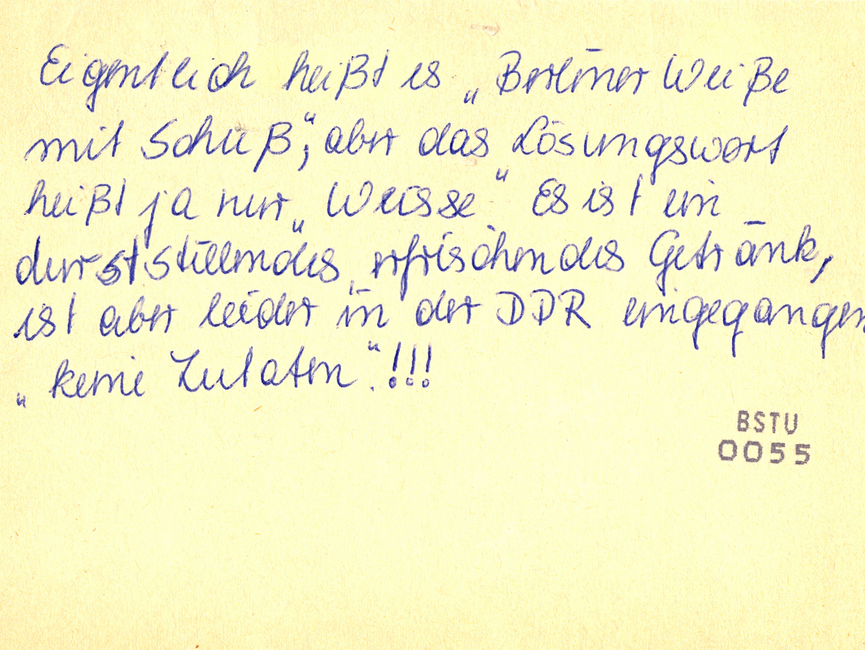 Eigentlich heißt es „Berliner Weiße
mit Schuß“, aber das Lösungswort
heißt ja nur „Weisse“ Es ist ein
durststillendes, erfrischendes Getränk,
ist aber leider in der DDR eingegangen
„keine Zutaten“!!!
BSTU
0055